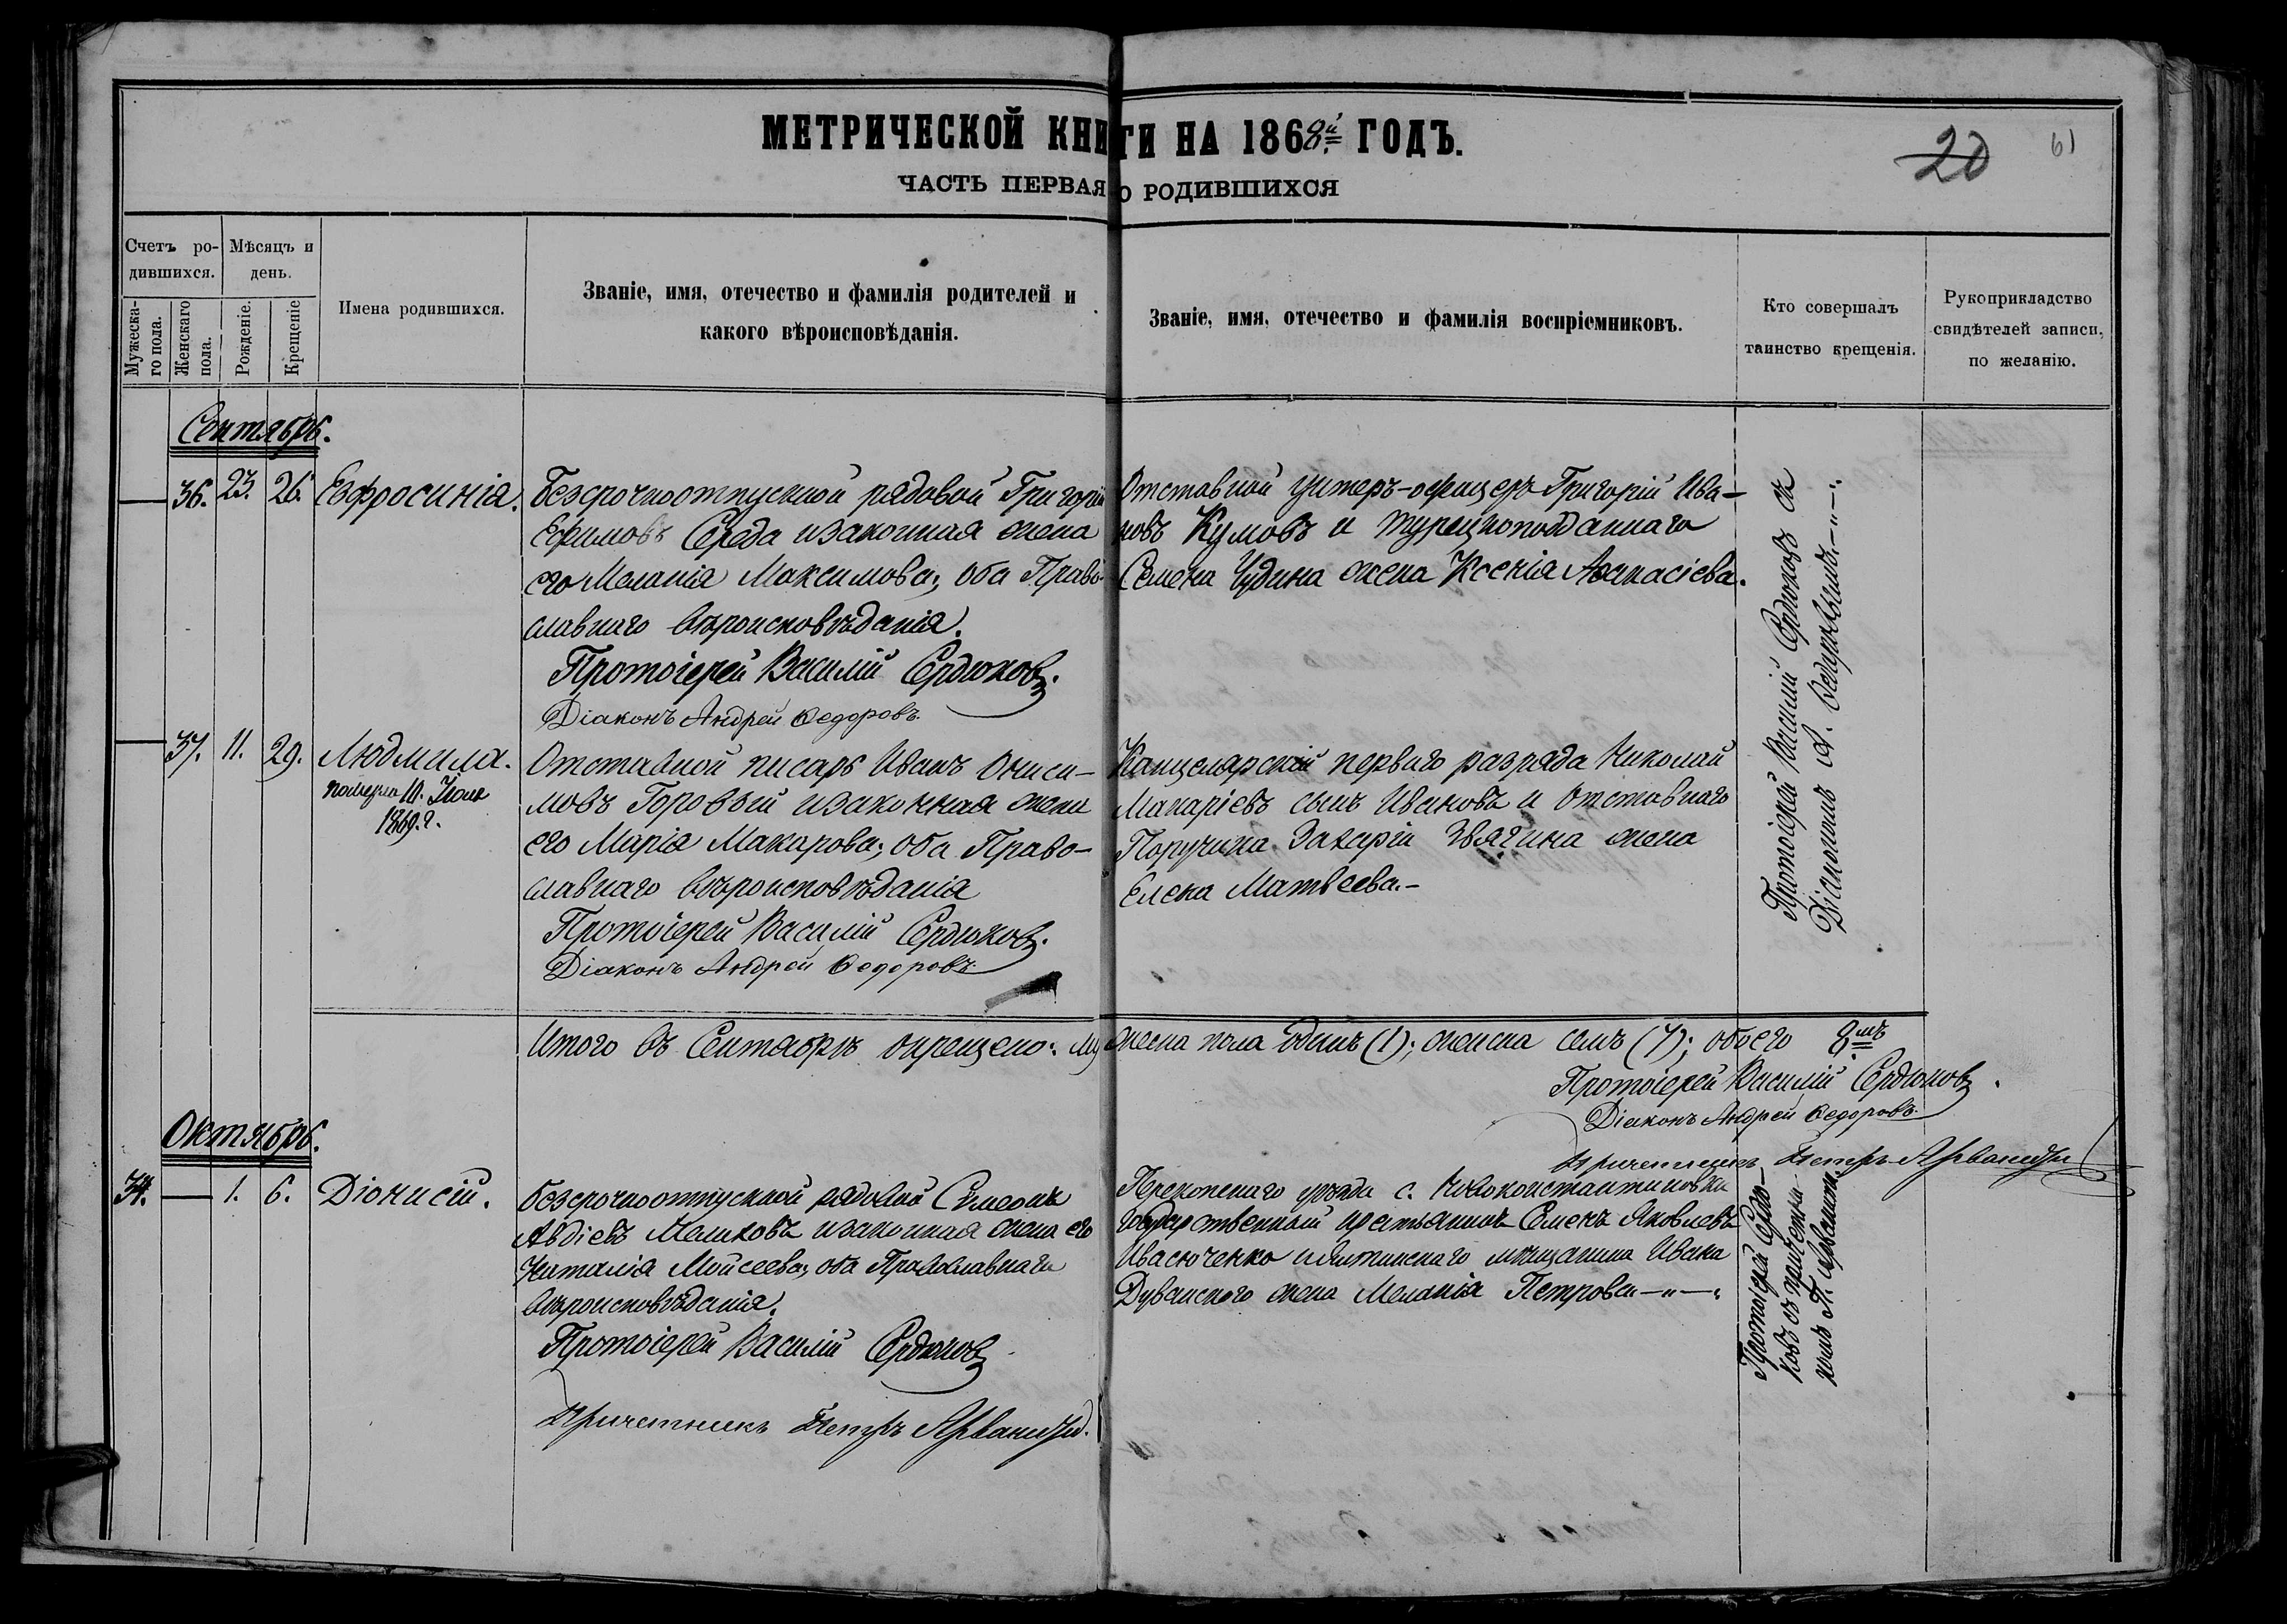 МЕТРИЧЕСКОЙ КНИГИ НА 1868й ГОДЪ.
20
61
ЧАСТЬ ПЕРВАЯ О РОДИВШИХСЯ
Счетъ ро-
дившихся.
Мѣсяцъ и
день.
Мужеска-
го пола.
Женскаго
пола.
Рожденіе.
Крещеніе
Имена родившихся.
Званіе, имя, отечество и фамилія родителей и
какого вѣроисповѣданія.
Званіе, имя, отечество и фамилія воспріемниковъ.
Кто совершалъ
таинство крещенія.
Рукоприкладство
свидѣтелей записи,
по желанію.
Сентябрь.
— 36. 23. 26. Евфросинія.
Безсрочноотпускной рядовой Григорій
Ефимовъ Середа изаконная жена
его Меланія Максимова; оба Право-
славнаго вѣроисповѣданія.
Протоіерей Василій Сердюковъ.
Діаконъ Андрей Ѳедоровъ.
Отставной унтеръ-офицеръ Григорій Ива-
новъ Кумовъ и турецкоподданнаго
Семена Чудина жена Ксенія Аѳанасіева.
Протоіерей Василій Сердюковъ съ
Діакономъ А. Ѳедоровымъ.—"—.
— 37. 11. 29. Людмила.
померла 10. Іюля
1869. г.
Отставной писарь Иванъ Ониси-
мовъ Горовый изаконная жена
его Марія Макарова; оба Право-
славнаго вѣроисповѣданія
Протоіерей Василій Сердюковъ.
Діаконъ Андрей Ѳедоровъ
Канцелярскій перваго разряда Николай
Макаріевъ сынъ Ивановъ и Отставнаго
Поручика Захарія Звягина жена
Елена Матвеева.-
Итого въ Сентябрѣ окрещено: мужеска пола одинъ (1); женска семь (7); обоего 8мь
Протоіерей Василій Сердюковъ.
Діаконъ Андрей Ѳедоровъ.
Причетникъ Петръ Арваниди
Октябрь.
34. — 1. 6. Діонисій.
безсрочноотпускной рядовой Симеонъ
Авдіевъ Машковъ изаконная жена его
Наталія Мойсеева, оба Православнаго
вѣроисповѣданія.
Протоіерей Василій Сердюковъ
Причетникъ Петръ Арваниди.
Перекопскаго уѣзда с. Новоконстантиновки
государственный крестьянинъ Семенъ Яковлевъ
Ивасюченко и мѣщанина Ивана
Дуванскаго жена Меланія Петрова—"—.
Протоіерей Сердю-
ковъ съ причетни-
комъ П. Арваниди.